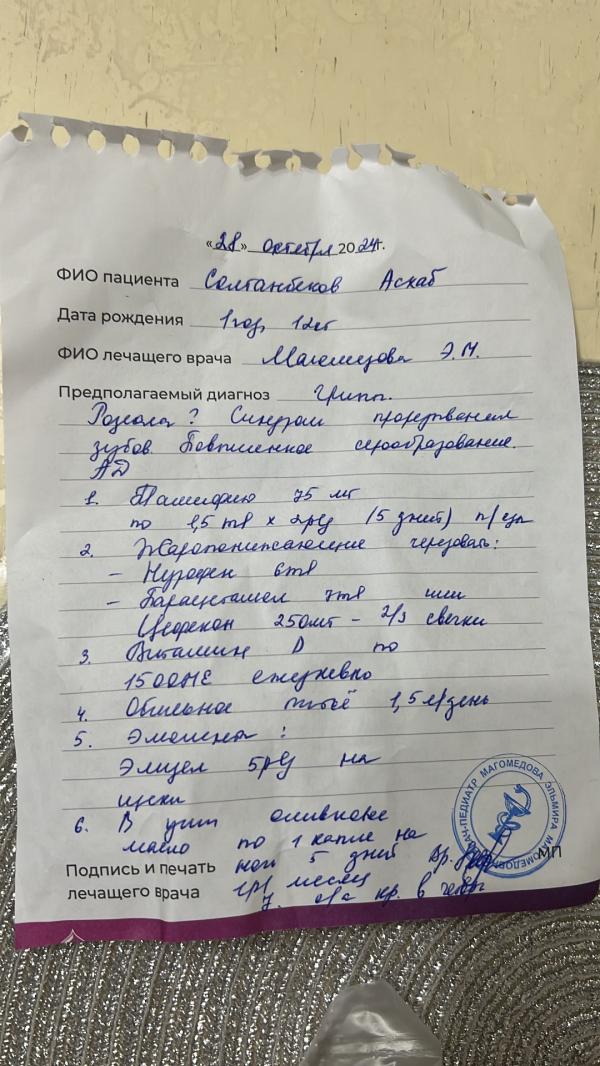 «28» октября 2024г.
ФИО пациента Солтанбеков Асхаб
Дата рождения 1год,
ФИО лечащего врача Магомедова Э.М.
Предполагаемый диагноз Грипп.
Розеола? Синдром прорезывания
зубов. Повышенное серообразование.
АД
1. Тамифлю 75 мг
по 1,5 мл х 2р/д (5 дней) п/еды
2. Жаропонижающие чередовать:
– Нурофен 6мл
– Парацетамол 7мл или
Цефекон 250мг – 2/3 свечки
3. Витамин D по
1500МЕ ежедневно
4. Обильное питьё 1,5л/день
5. Эмолиенты:
Элицел 5р/д на
щеки
6. В уши оливковое
масло по 1 капле на
ночь 5 дней Др.
1р/месяц
7. ОАК кр. в четверг
Подпись и печать
лечащего врача
МП
ВРАЧ-ПЕДИАТР МАГОМЕДОВА ЭЛЬМИРА МАГОМЕДОВНА